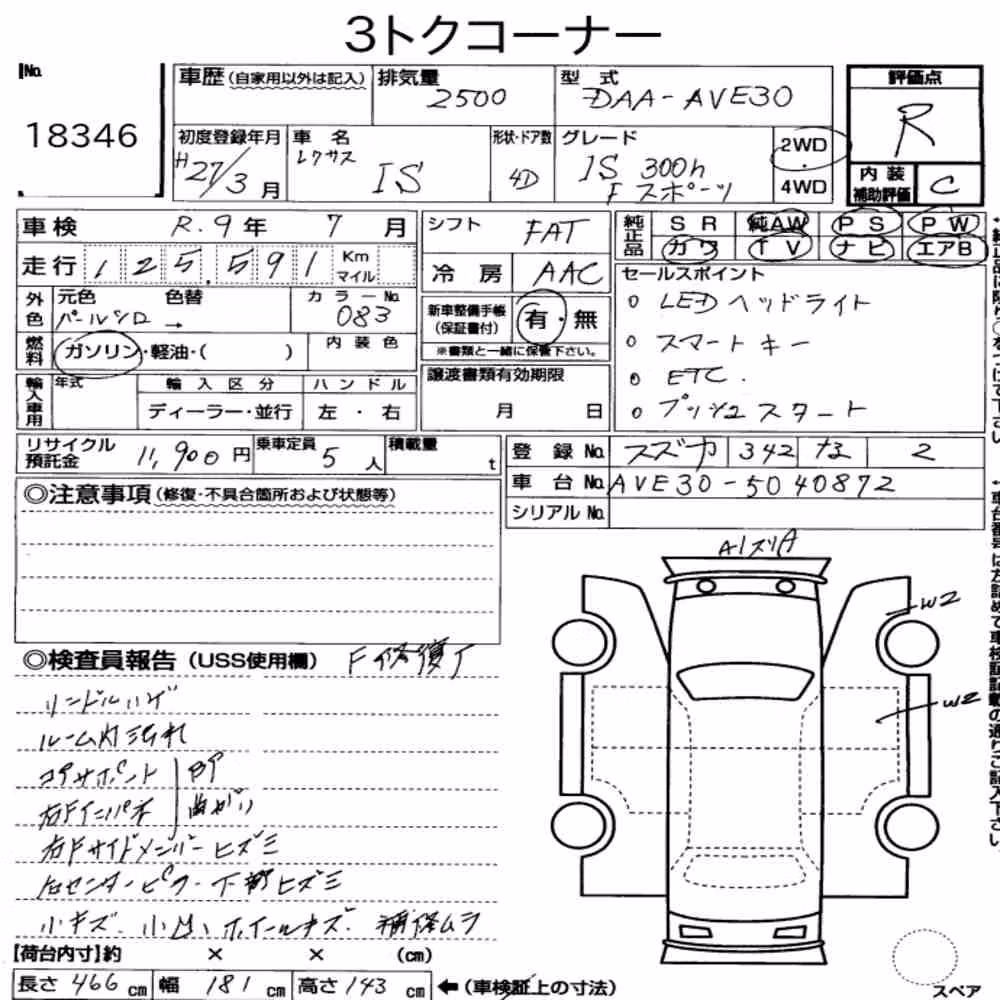 3トクコーナー
No. 18346
車歴(自家用以外は記入) 排気量 2500 型式 DAA-AVE30
初度登録年月 H27/3月 車名 レクサス IS 形状・ドア数 4D グレード IS 300h Fスポーツ 2WD 4WD
評価点 R
内装補助評価 C
車検 R.9年 7月 シフト FAT
走行 125,591 Km マイル 冷房 AAC
純正品 SR 純AW PS PW
カワ TV ナビ エアB
外色 元色 パールシロ → 色替 カラーNo. 083
新車整備手帳(保証書付) 有・無
※書類と一緒に保管下さい。
燃料 ガソリン・軽油・( ) 内装色
輸入車用 年式 輸入区分 ディーラー・並行 ハンドル 左・右
譲渡書類有効期限 月 日
セールスポイント
○ LEDヘッドライト
○ スマートキー
○ ETC.
○ プッシュスタート
リサイクル預託金 11,900円 乗車定員 5人 積載量 t
登録No. スズカ 342 な 2
車台No. AVE30-5040872
シリアルNo.
◎注意事項(修復・不具合箇所および状態等)
◎検査員報告(USS使用欄) F修復了
リンドルハゲ
ルーム内汚れ
コアサポート BP
右Fインパネ 曲がり
右Fサイドメンバーヒズミ
右センターピラー下部ヒズミ
小キズ.小凹、ホイールキズ.補修ムラ
A1スリA
W2
W2
【荷台内寸】約 × × (cm)
長さ 466 cm 幅 181 cm 高さ 143 cm ←(車検証上の寸法)
スペア